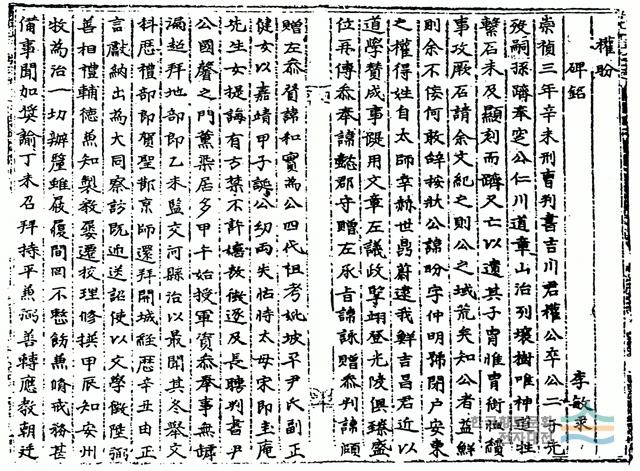 權盼
碑銘
李敏求
崇禎三年辛未刑曹判書吉川君權公卒公二子先
歿嗣孫躋奉窆公仁川道章山治列壤樹唯神道牲
繫石未及顯刻而躋又亡以遺其子胄惟胄銜恤礦
事攻厥石請余文紀之則公之域荒矣知公者益鮮
則余不佞何敢辭按狀公諱盼字仲明號閉户安東
之權得姓自太師幸赫世鼎蔚逮我鮮吉昌君近以
道學贊成事踶用文章左議政擥翊登光陵俱臻盛
位再傳叅奉諱懿郡守贈左承旨諱詠贈叅判諱頎
贈左叅賛諱和實為公四代祖考妣坡平尹氏副正
健女以嘉靖甲子誕公幼而失怙時太母宋即圭庵
先生女提誨有方禁不許嬉敖徵逐及長聘判書尹
公國馨之門薰染居多甲午始授軍資叅奉事無罅
漏超拜地部郎乙未監交河縣治以最聞其冬舉文
科歷禮部郎賀聖節京師還拜開城經歷辛丑由正
言獻納出為大同察訪既迎送詔使以文學倣陞弼
善相禮輔德兼知製教屡遷挍理修撰甲辰知安州
牧為治一切辦釐雖屐履間罔不慗飭兼脩戒務甚
備事聞加奨諭丁未召拜持平兼弼善轉應教朝廷